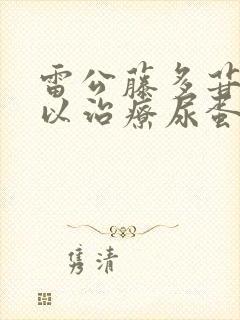 雷公藤多苷
以治疗尿蛋
隽清